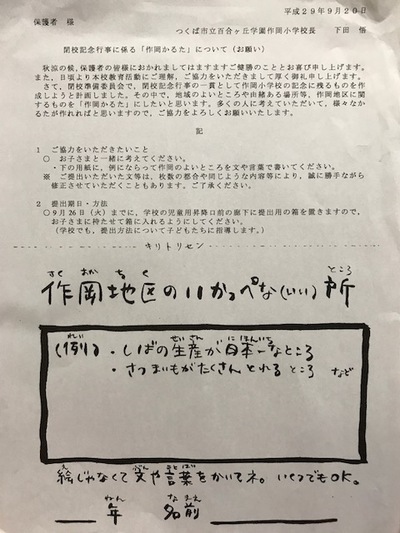 平成29年9月20日
保護者 様
つくば市立百合ヶ丘学園作岡小学校長 下田 悟
閉校記念行事に係る「作岡かるた」について(お願い)
秋涼の候,保護者の皆様におかれましてはますますご健勝のこととお喜び申し上げます。
また,日頃より本校教育活動にご理解,ご協力をいただきまして厚く御礼申し上げます。
さて,閉校準備委員会で,閉校記念行事の一貫として作岡小学校の記念に残るものを作
成しようと計画しました。その中で,地域のよいところや由緒ある場所等,作岡地区に関
するものを「作岡かるた」にしたいと思います。多くの人に考えていただいて,様々なか
るたが作れればと思いますので,ご協力をよろしくお願いいたします。
記
1 ご協力をいただきたいこと
○ お子さまと一緒に考えてください。
・下の用紙に,例にならって作岡のよいところを文や言葉で書いてください。
※ ご提出いただいた文等は,枚数の都合や同じような内容等により,誠に勝手ながら
修正させていただくこともあります。ご了承ください。
2 提出期日・方法
○9月26日(火)までに,学校の児童用昇降口前の廊下に提出用の箱を置きますので,
お子さまに持たせて箱に入れるようにしてください。
(学校でも,提出方法について子どもたちに指導します。)
キリトリセン
さくおかちく ところ
作岡地区のいがっぺな(いい)所
(例) ・しばの生産が日本一なところ
・さつまいもがたくさんとれるところ など
絵じゃなくて文や言葉をかいてネ。いくつでもOK。
ねん なまえ
年 名前